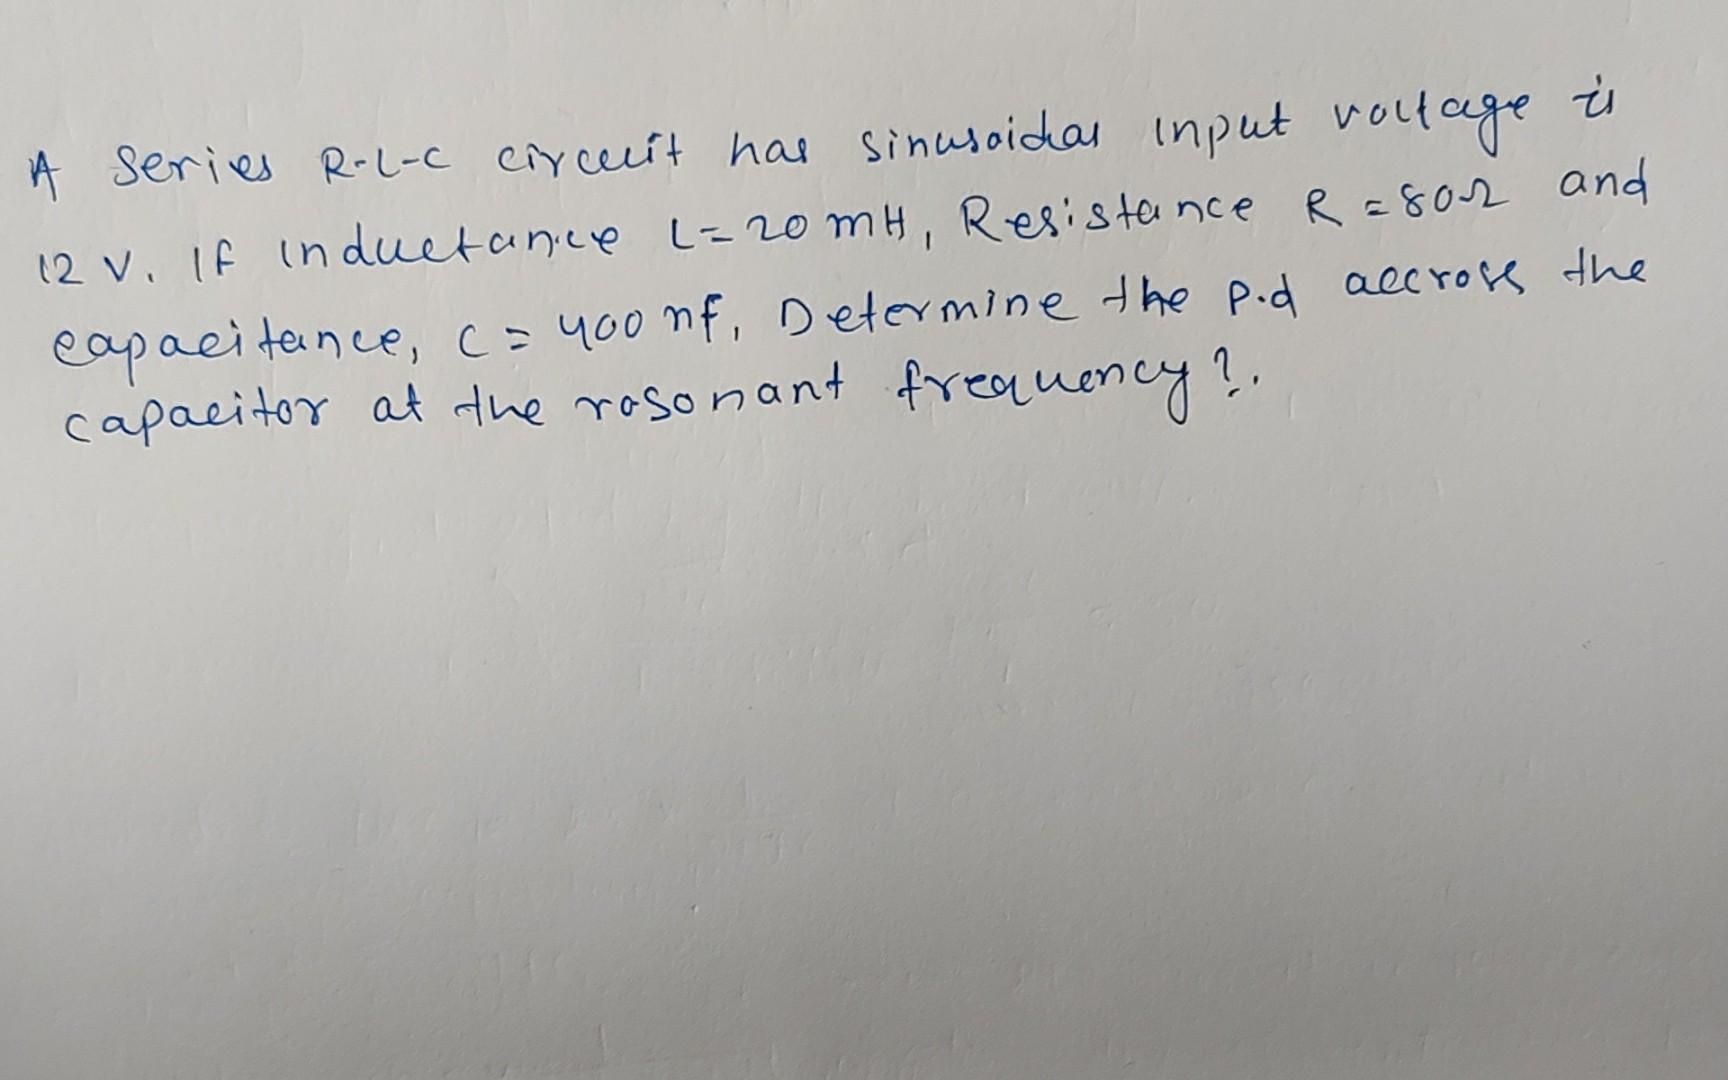 A Series R-L-C circuit has sinusoidal input voltage is
12 V. If inductance L = 20 mH, Resistance R = 80Ω and
capacitance, C = 400 nf, Determine the p.d accross the
capacitor at the rosonant frequency?.